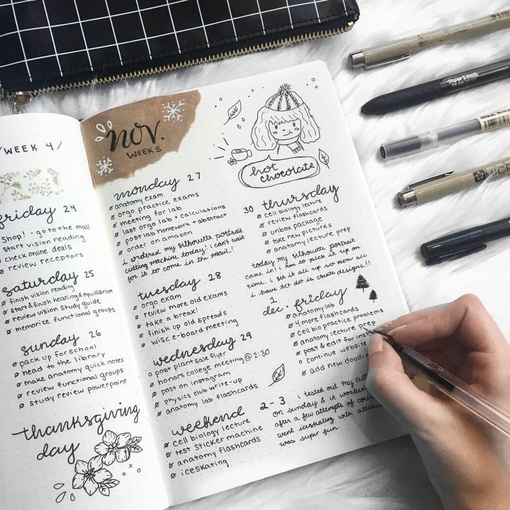 /WEEK 4/
friday 24
shop! - go to the mall
start vision reading
check online deals
review receptors
saturday 25
finish vision reading
start & finish hearing & equilibrium
review vision study guide
memorize functional groups
sunday 26
pack up for school!
head to the library
make anatomy quick notes
review functional groups
study review powerpoint
thanksgiving
day
nov.
WEEK 5
monday 27
anatomy exam
orgo practice exams
meeting for lab
last orgo lab + calculations
post lab homework + abstract
order on amazon
I ordered my silhouette portrait
cutting machine today! i can't wait
for it to come in the mail!
tuesday 28
orgo exam
review more old exams
take a break!
finish up old spreads
wisc e-board meeting
wednesday 29
post plant sale flyer
honors college meeting @ 2:30
post on instagram
physics lab write-up
anatomy lab flashcards
weekend 2-3
cell biology lecture
test sticker machine
anatomy flashcards
iceskating
hot
chocolate
30 thursday
cell biology lecture
review flashcards
unbox package
take new pictures
anatomy lecture prep
today my silhouette portrait
came in! i ran to pick it up on
time. i set it all up so now all
i have left do is create designs!!
dec 1 friday
anatomy lab
4 more flashcards
cell bio practice problems
anatomy lecture prep
post & eat for
continue website
add new doodle
i tested out my
on sunday & it worked
after a few attempts of
went iceskating with
was super fun.
Paper Mate